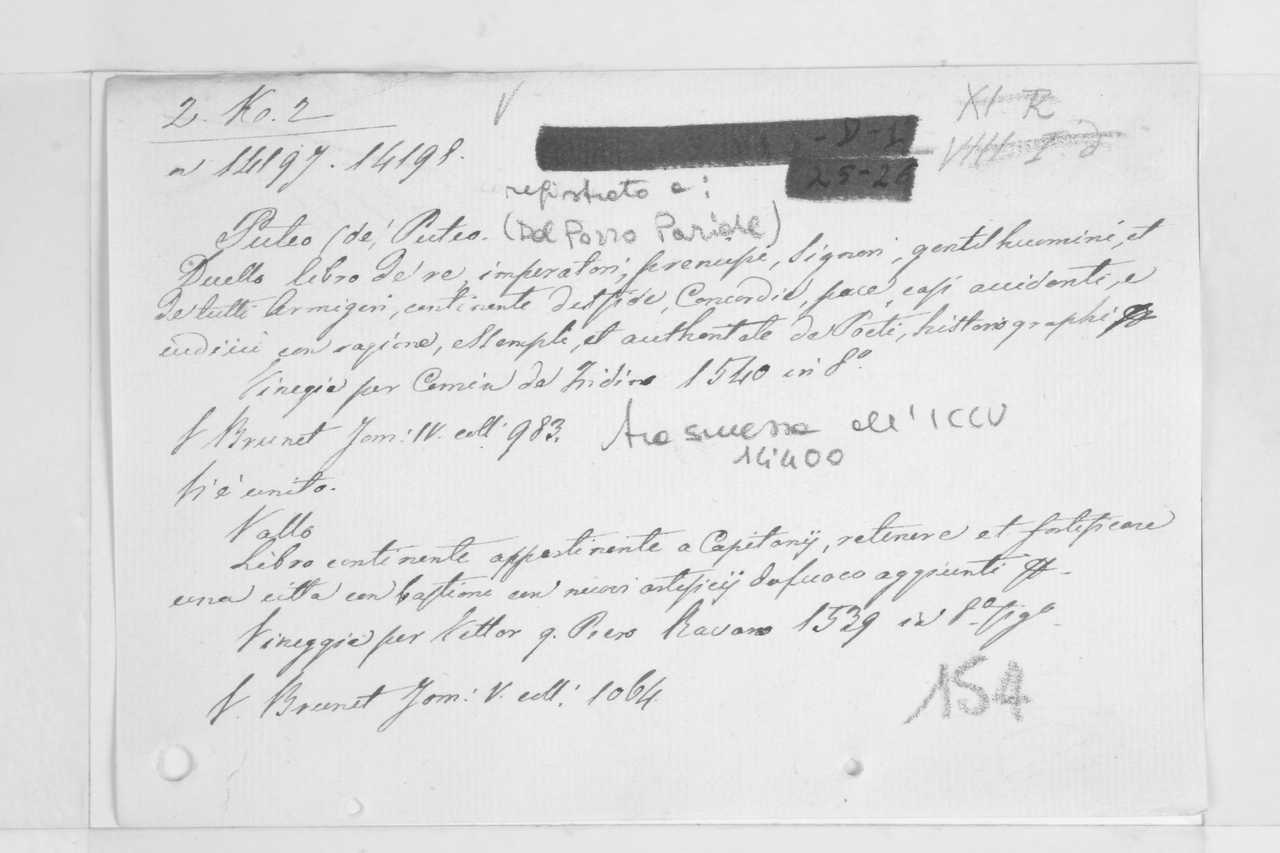 2. Ko. 2
V
XI R
VIIII I d
- D - L
25-26
n 14197. 14198.
registrato a:
(Del Pozzo Paride)
Puteo (de') Puteo.
Duello libro de re, imperatori, prencipi, Signori, gentilhuomini, et
de tutti Armigeri, continente desfide, Concordie, pace, casi accidenti, e
iudicii con ragione, essempli, et authoritate de Poeti, historiographi
Vinegia per Comin da Tridino 1540 in 8º.
V Brunet Tom: IV. coll: 983.
Trasmessa all' ICCU
14400
Vi è unito.
Vallo
Libro continente appertinente a Capitanij, retenere et fortificare
una citta con bastioni con nuovi artificij de fuoco aggiunti
Vineggia per Vettor q. Piero Ravano 1539 in 8º figº
V. Brunet Tom: V. coll: 1064.
154